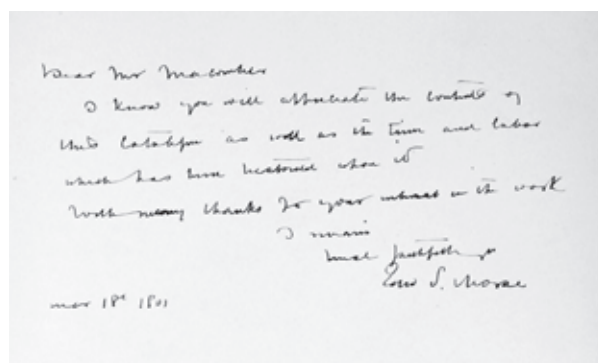 Dear Mr Macomber
I know you will appreciate the contents of
this Catalogue as well as the time and labor
which has been bestowed upon it
With many thanks for your interest in the work
I remain
Most faithfully
Edw S. Morse
Mar 18th